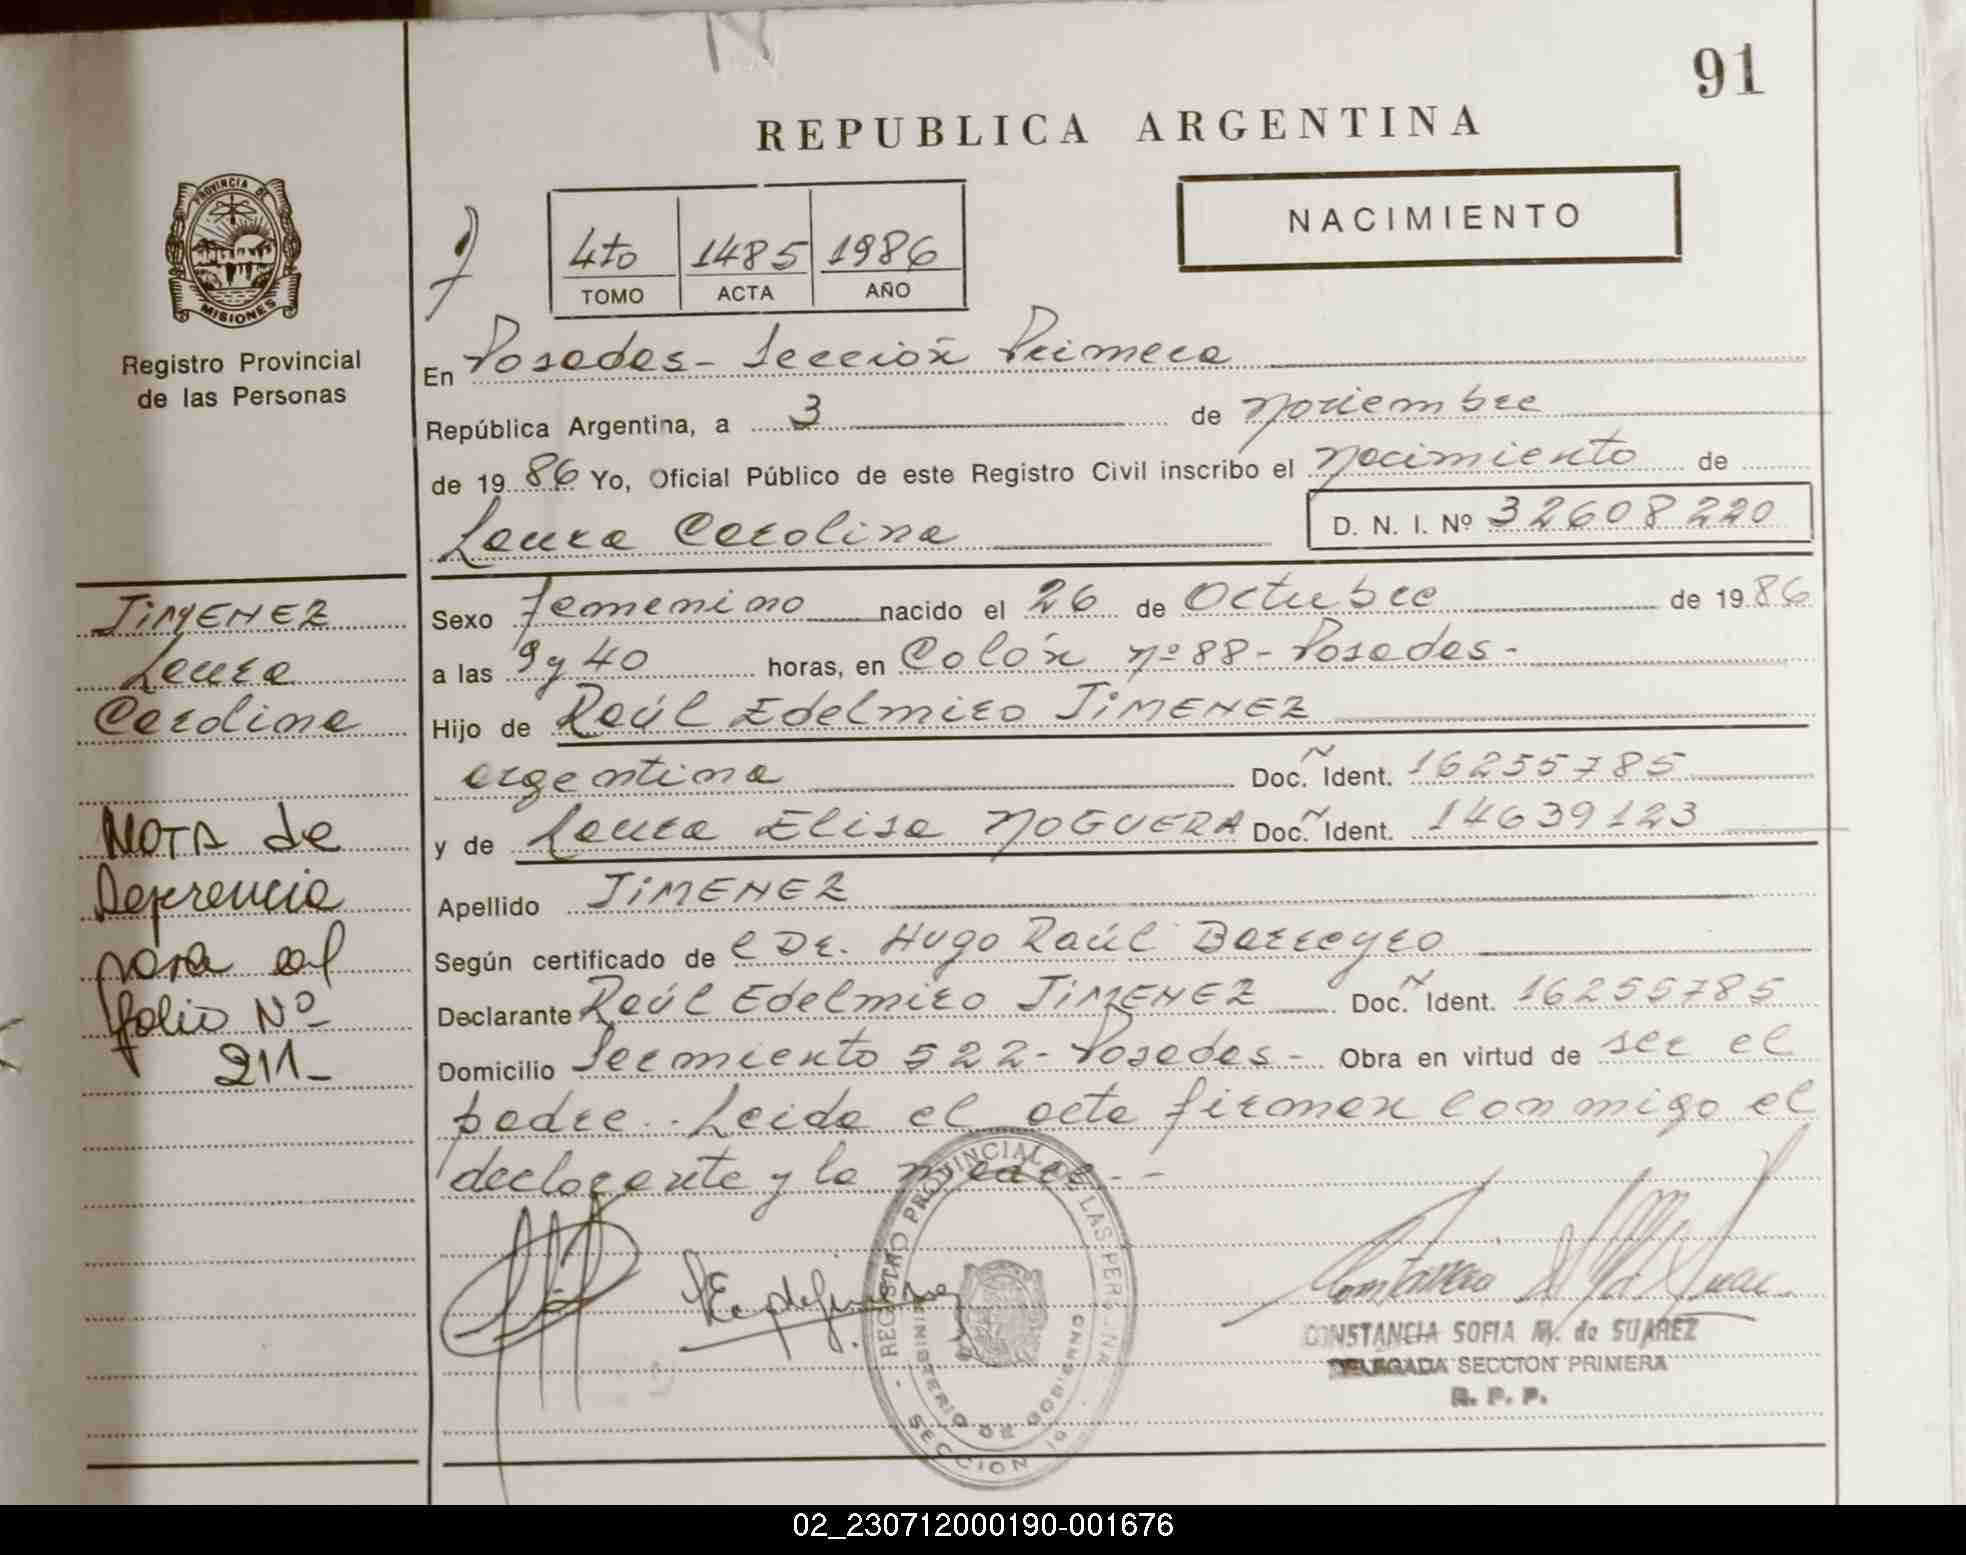 91
REPUBLICA ARGENTINA
PROVINCIA DE
MISIONES
Registro Provincial
de las Personas
4to 1485 1986
TOMO ACTA AÑO
NACIMIENTO
En Posadas - Sección Primera
República Argentina, a 3 de noviembre
de 1986 Yo, Oficial Público de este Registro Civil inscribo el nacimiento de
Laura Carolina D. N. I. Nº 32608220
JIMENEZ
Laura
Carolina
Sexo femenino nacido el 26 de Octubre de 1986
a las 9 y 40 horas, en Colón nº 88 - Posadas -
Hijo de Raúl Edelmiro JIMENEZ
argentina Doc. Ident. 16255785
y de Laura Elisa NOGUERA Doc. Ident. 14639123
Apellido JIMENEZ
Según certificado de l Dr. Hugo Raúl Barreyro
Declarante Raúl Edelmiro JIMENEZ Doc. Ident. 16255785
Domicilio Sarmiento 522 - Posadas - Obra en virtud de ser el
padre. - Leida el acta firman conmigo el
declarante y la madre. -
NOTA de
Referencia
para al
folio Nº
211-
REGISTRO PROVINCIAL DE LAS PERSONAS
MINISTERIO DE GOBIERNO
SECCION 1ª
CONSTANCIA SOFIA M. de SUAREZ
DELEGADA SECCION PRIMERA
R. P. P.
02_230712000190-001676